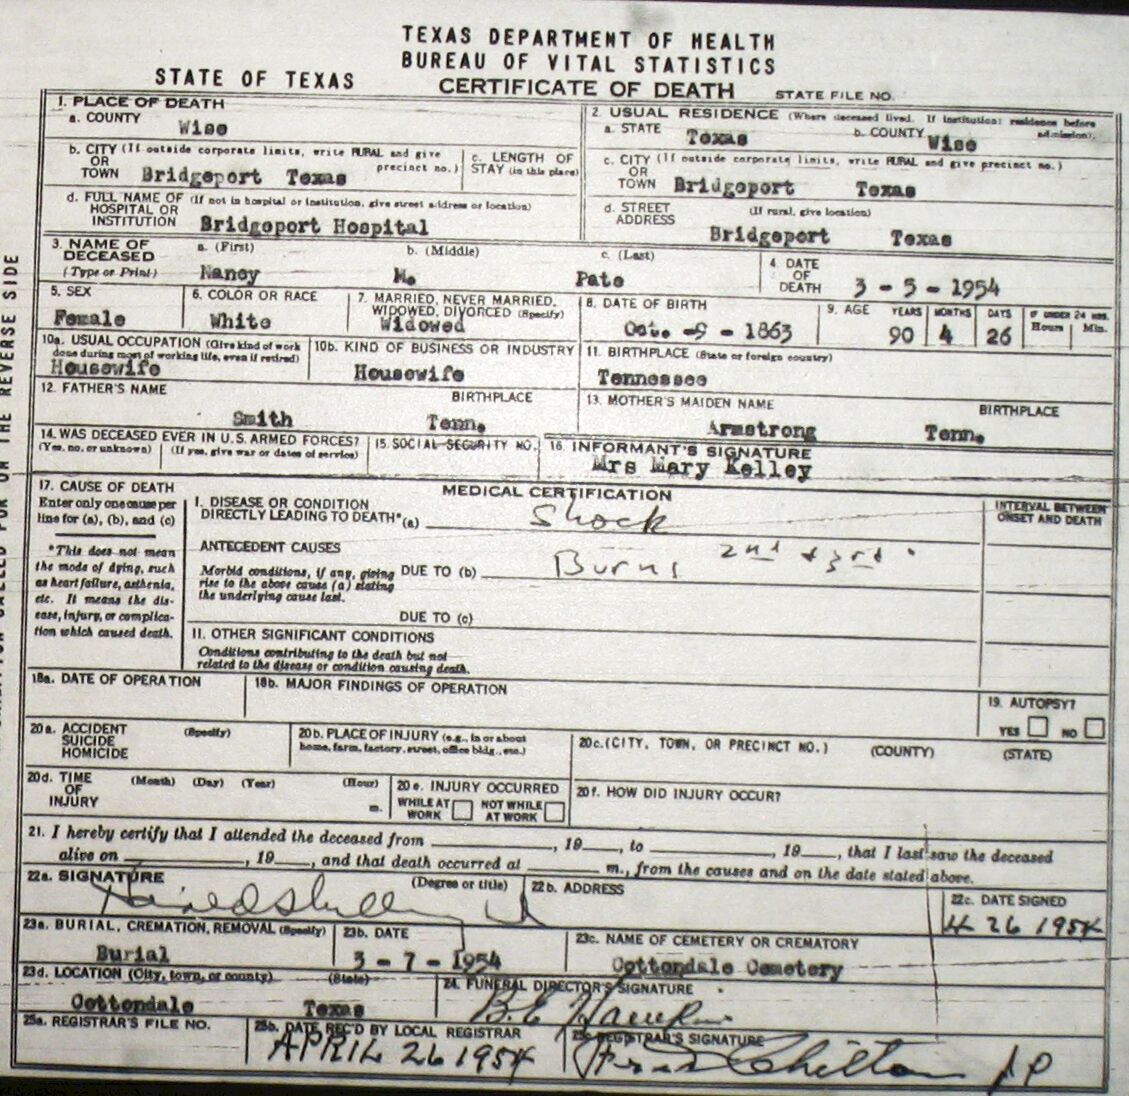 TEXAS DEPARTMENT OF HEALTH
BUREAU OF VITAL STATISTICS
STATE OF TEXAS
CERTIFICATE OF DEATH
STATE FILE NO.
1. PLACE OF DEATH
a. COUNTY
Wise
2. USUAL RESIDENCE (Where deceased lived. If institution: residence before admission).
a. STATE Texas b. COUNTY Wise
b. CITY (If outside corporate limits, write RURAL and give precinct no.)
OR
TOWN Bridgeport Texas
c. LENGTH OF
STAY (in this place)
c. CITY (If outside corporate limits, write RURAL and give precinct no.)
OR
TOWN Bridgeport Texas
d. FULL NAME OF (If not in hospital or institution, give street address or location)
HOSPITAL OR
INSTITUTION Bridgeport Hospital
d. STREET (If rural, give location)
ADDRESS
Bridgeport Texas
3. NAME OF
DECEASED
(Type or Print)
a. (First) b. (Middle) c. (Last)
Nancy M. Pate
4. DATE
OF
DEATH 3 - 5 - 1954
5. SEX
Female
6. COLOR OR RACE
White
7. MARRIED, NEVER MARRIED,
WIDOWED, DIVORCED (Specify)
Widowed
8. DATE OF BIRTH
Oct. -9 - 1863
9. AGE YEARS MONTHS DAYS IF UNDER 24 HRS.
Hours Min.
90 4 26
10a. USUAL OCCUPATION (Give kind of work
done during most of working life, even if retired)
Housewife
10b. KIND OF BUSINESS OR INDUSTRY
Housewife
11. BIRTHPLACE (State or foreign country)
Tennessee
12. FATHER'S NAME BIRTHPLACE
Smith Tenn.
13. MOTHER'S MAIDEN NAME BIRTHPLACE
Armstrong Tenn.
14. WAS DECEASED EVER IN U.S. ARMED FORCES?
(Yes, no, or unknown) (If yes, give war or dates of service)
15. SOCIAL SECURITY NO.
16. INFORMANT'S SIGNATURE
Mrs Mary Kelley
17. CAUSE OF DEATH
Enter only one cause per
line for (a), (b), and (c)
*This does not mean
the mode of dying, such
as heart failure, asthenia,
etc. It means the dis-
ease, injury, or complica-
tion which caused death.
MEDICAL CERTIFICATION
INTERVAL BETWEEN
ONSET AND DEATH
I. DISEASE OR CONDITION
DIRECTLY LEADING TO DEATH*(a) Shock
ANTECEDENT CAUSES
Morbid conditions, if any, giving
rise to the above cause (a) stating
the underlying cause last.
DUE TO (b) Burns 2nd + 3rd
DUE TO (c)
II. OTHER SIGNIFICANT CONDITIONS
Conditions contributing to the death but not
related to the disease or condition causing death.
18a. DATE OF OPERATION
18b. MAJOR FINDINGS OF OPERATION
19. AUTOPSY?
YES NO
20a. ACCIDENT (Specify)
SUICIDE
HOMICIDE
20b. PLACE OF INJURY (e.g., in or about
home, farm, factory, street, office bldg., etc.)
20c. (CITY, TOWN, OR PRECINCT NO.) (COUNTY) (STATE)
20d. TIME (Month) (Day) (Year) (Hour)
OF
INJURY m.
20e. INJURY OCCURRED
WHILE AT
WORK
NOT WHILE
AT WORK
20f. HOW DID INJURY OCCUR?
21. I hereby certify that I attended the deceased from , 19 , to , 19 , that I last saw the deceased
alive on , 19 , and that death occurred at m., from the causes and on the date stated above.
22a. SIGNATURE (Degree or title)
22b. ADDRESS
22c. DATE SIGNED
4 26 1954
23a. BURIAL, CREMATION, REMOVAL (Specify)
Burial
23b. DATE
3 - 7 - 1954
23c. NAME OF CEMETERY OR CREMATORY
Cottondale Cemetery
23d. LOCATION (City, town, or county) (State)
Cottondale Texas
24. FUNERAL DIRECTOR'S SIGNATURE
B. E
25a. REGISTRAR'S FILE NO.
25b. DATE REC'D BY LOCAL REGISTRAR
APRIL 26 1954
25c. REGISTRAR'S SIGNATURE
Chilton J P
FOR ON THE REVERSE SIDE